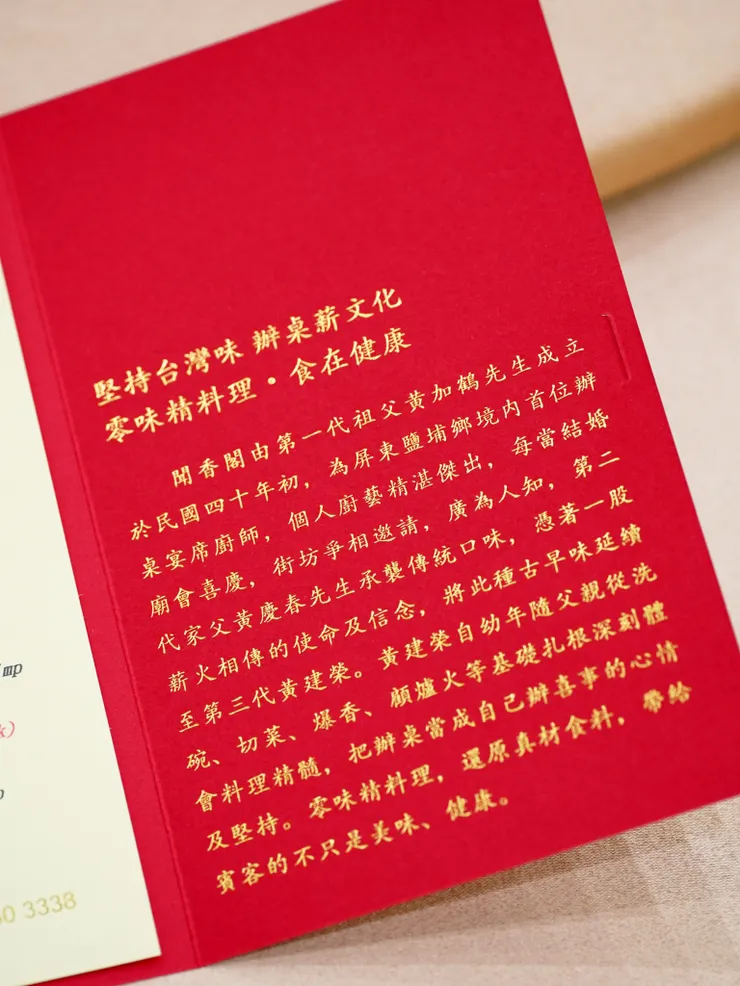 堅持台灣味 辦桌薪文化
零味精料理・食在健康
聞香閣由第一代祖父黃加鶴先生成立
於民國四十年初，為屏東鹽埔鄉境內首位辦
桌宴席廚師，個人廚藝精湛傑出，每當結婚
廟會喜慶，街坊爭相邀請，廣為人知，第二
代家父黃慶春先生承襲傳統口味，憑著一股
薪火相傳的使命及信念，將此種古早味延續
至第三代黃建榮。黃建榮自幼年隨父親從洗
碗、切菜、爆香、顧爐火等基礎扎根深刻體
會料理精髓，把辦桌當成自己辦喜事的心情
及堅持。零味精料理，還原真材食料，帶給
賓客的不只是美味、健康。
3338